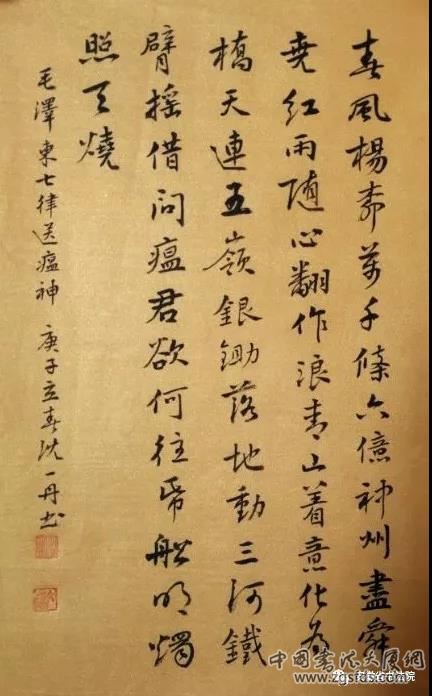 春風楊柳萬千條六億神州盡舜
尭紅雨随心翻作浪青山着意化為
橋天連五嶺銀鋤落地動三河鐵
臂摇借問瘟君欲何往帋船明燭
照天燒
毛澤東七律送瘟神 庚子立春沈一丹书
中国书法大展网